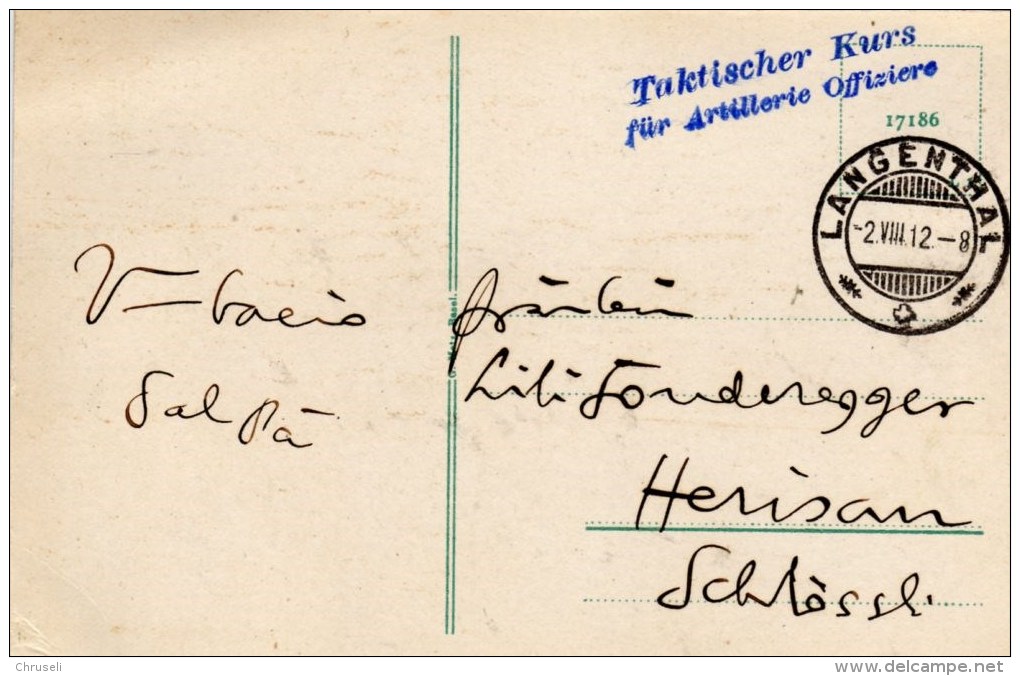 Taktischer Kurs
für Artillerie Offiziere
17186
LANGENTHAL
-2.VIII.12.-8
V- bacio
dal Pà
Fräulein
Lili Sonderegger
Herisau
Schlössli.
Chruseli
www.delcampe.net